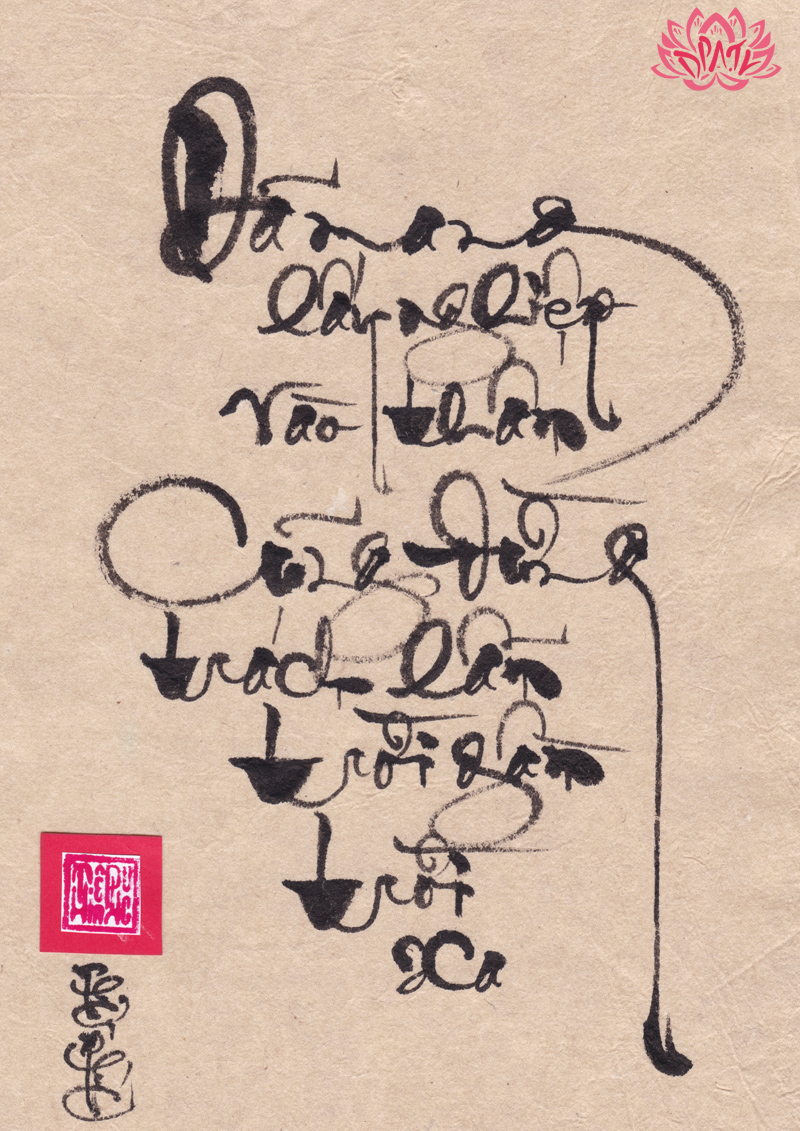 Đã mang
lấy nghiệp
vào thân
Cũng đừng
trách lẫn
trời gần
trời
xa